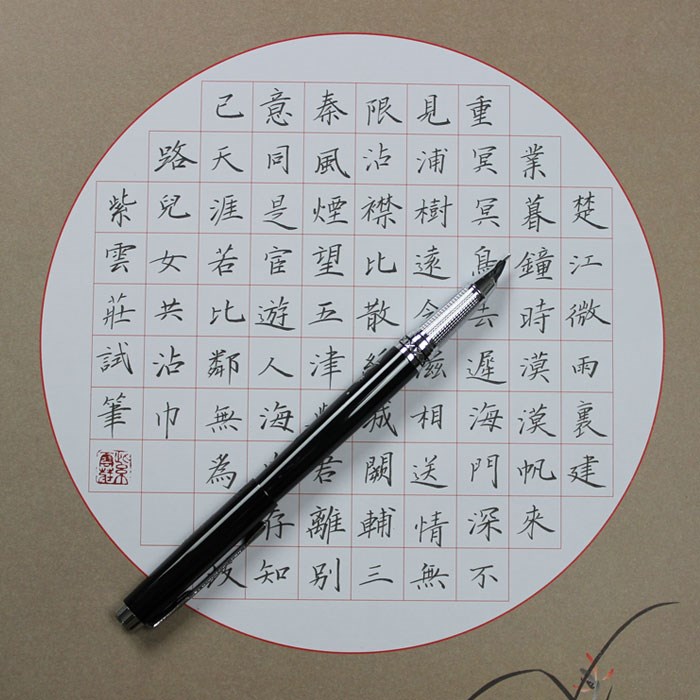 楚江微雨裏建
業暮鐘時漠漠帆來
重冥冥鳥去遲海門深不
見浦樹遠含滋相送情無
限沾襟比散絲城闕輔三
秦風煙望五津君離別
意同是宦遊人海存知
己天涯若比鄰無為歧
路兒女共沾巾
紫雲莊試筆